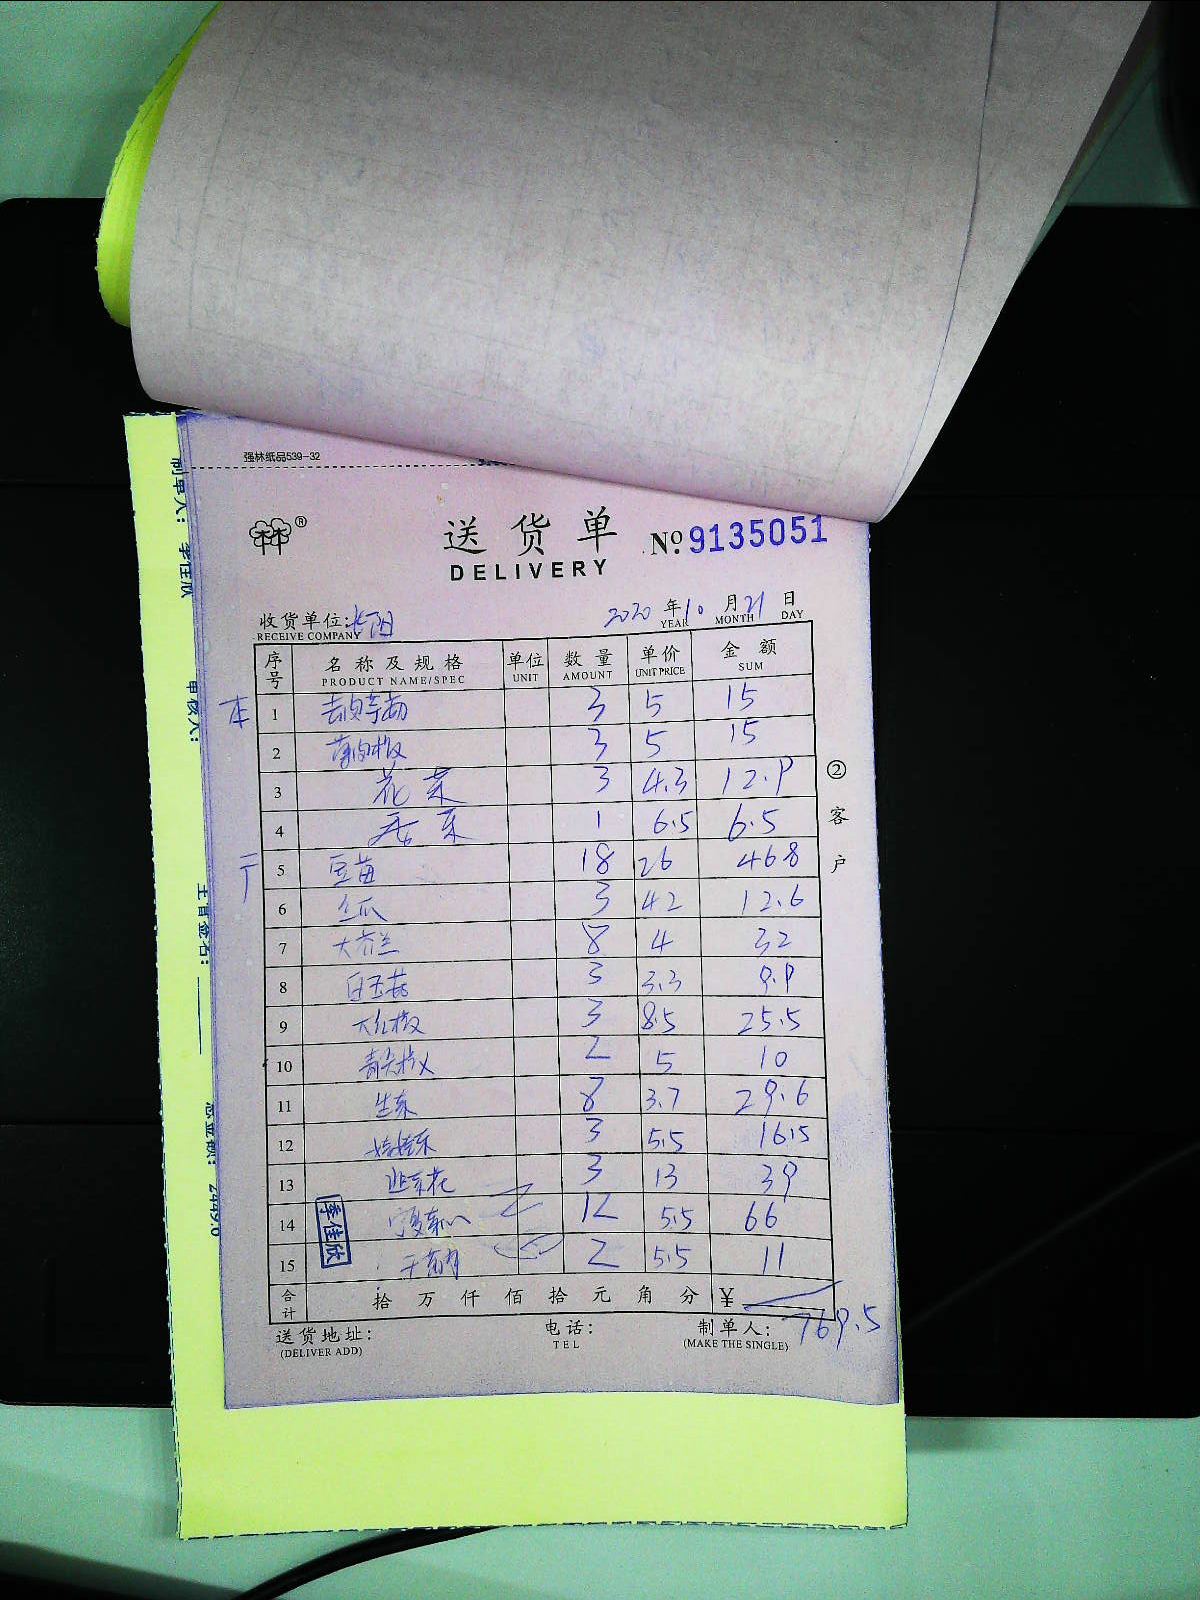 强林纸品539-32
送货单 Nº 9135051
DELIVERY
收货单位:
RECEIVE COMPANY
2020 年 10 月 21 日
YEAR MONTH DAY
序号 名称及规格 单位 数量 单价 金额
PRODUCT NAME/SPEC UNIT AMOUNT UNIT PRICE SUM
本 1 3 5 15
2 3 5 15
3 花菜 3 4.3 12.9
4 1 6.5 6.5
5 豆苗 18 26 468
6 丝瓜 3 4.2 12.6
7 大芥兰 8 4 32
8 白玉菇 3 3.3 9.9
9 大红椒 3 8.5 25.5
10 青尖椒 2 5 10
11 生菜 8 3.7 29.6
12 娃娃菜 3 5.5 16.5
13 韭菜花 3 13 39
14 12 5.5 66
15 2 5.5 11
李佳欣
合计 拾 万 仟 佰 拾 元 角 分 ¥
769.5
送货地址: 电话: 制单人:
(DELIVER ADD) TEL (MAKE THE SINGLE)
②客户
制单人: 李佳欣
审核人:
主管签名:
总金额: 2449.6